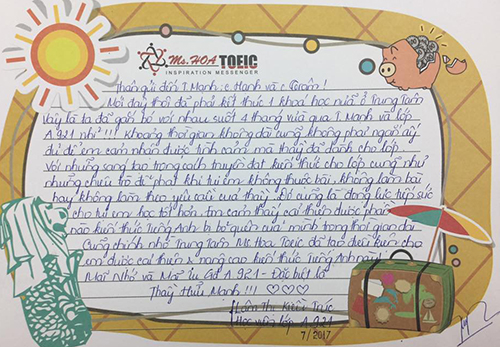 Ms.HOA TOEIC
INSPIRATION MESSENGER
Thân gửi đến T. Mạnh, c. Hạnh và c. Trâm!
Mới đây thôi đã phải kết thúc 1 khoá học nữa ở Trung Tâm
Vậy là ta đã gắn bó với nhau suốt 4 tháng vừa qua T. Mạnh và lớp
A921 nhỉ!!! Khoảng thời gian không dài cũng không phải ngắn ấy
đủ để em cảm nhận được tình cảm mà thầy đã dành cho lớp.
Với những sáng tạo trong cách truyền đạt kiến thức cho lớp cũng như
những chiêu trò để phạt khi tụi em không thuộc bài, không làm bài
hay không làm theo yêu cầu của thầy. Đó cũng là động lực tiếp sức
cho tụi em học tốt hơn. Em cảm thấy cải thiện được phần
nào kiến thức Tiếng Anh bị bỏ quên của mình trong thời gian dài.
Cũng chính nhờ Trung Tâm Ms Hoa Toeic đã tạo điều kiện cho
em được cải thiện & nâng cao kiến thức Tiếng Anh này!
Mãi Nhớ và Mãi Yêu A921 - Đặc biệt là
Thầy Hữu Mạnh!!! ♡♡♡
Thị Kiều Trúc
Học viên lớp A921
7/2017